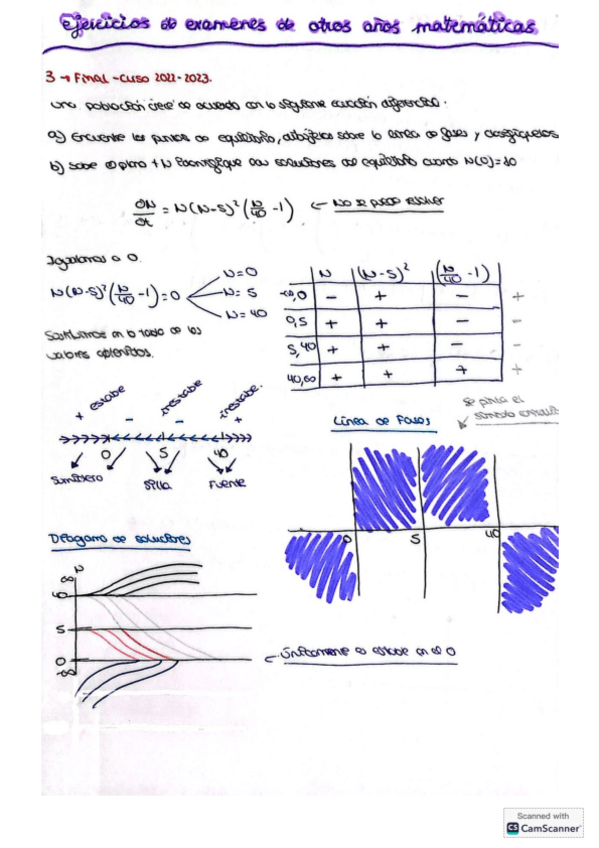 ejercicios de examenes de otros años matemáticas.
3 → Final - Curso 2022-2023.
Una población crece de acuerdo con la siguiente ecuación diferencial.
a) Encuentre los puntos de equilibrio, dibújelos sobre la línea de fases y clasifíquelos
b) Sobre el plano t N identifique las soluciones del equilibrio cuando N(0)=10
dN/dt = N(N-5)²(N/40 -1) ← No se puede resolver
Igualamos a 0.
N(N-5)²(N/40 -1)=0
N=0
N=5
N=40
Sustituimos en la tabla de los
valores obtenidos.
N (N-5)² (N/40 -1)
-∞,0 - + - +
0,5 + + - -
5,40 + + - -
40,60 + + + +
+ estable - inestable - inestable. +
0 5 40
Sumidero Silla Fuente
Línea de Fases
Se pinta el
0 5 40
Diagrama de soluciones
N
∞
40
5
0
-∞
← Únicamente es estable en el 0
Scanned with
CS CamScanner